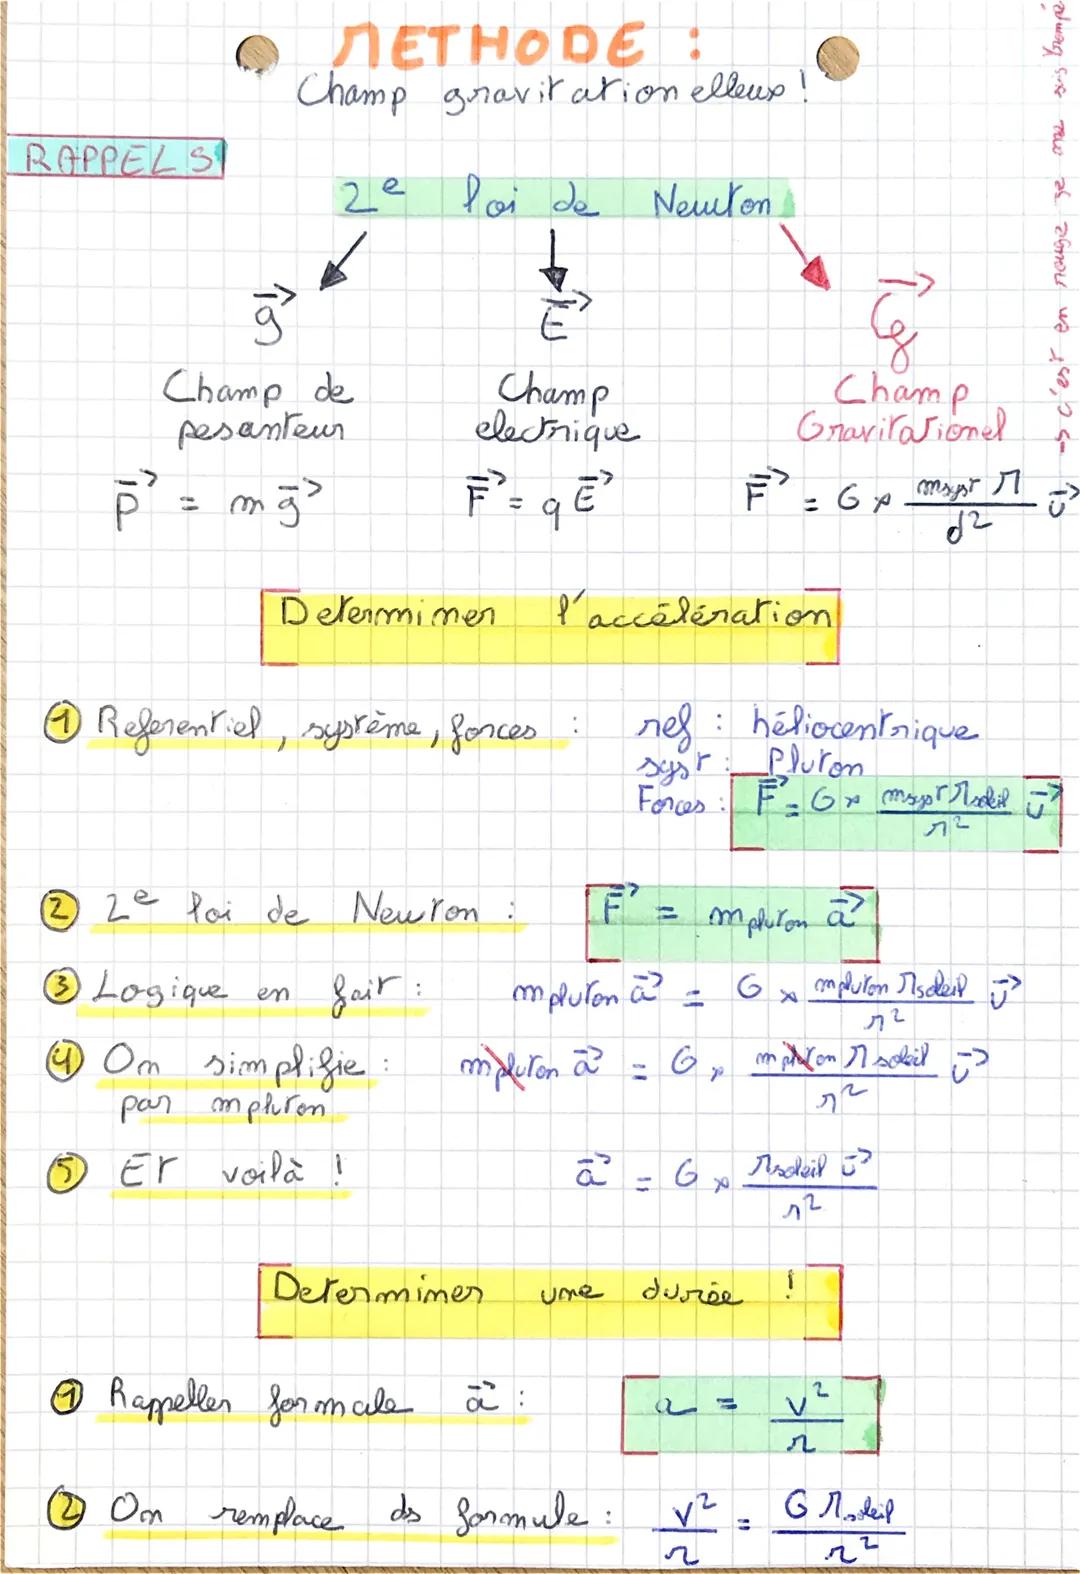 METHODE :
Champ gravitationelleux !
→ c'est en rouge je me suis trompé
RAPPELS
2e loi de Newton
g⃗ E⃗ G⃗
Champ de pesanteur
Champ electrique
Champ Gravitationel
P⃗ = m g⃗
F⃗ = q E⃗
F⃗ = G × msyst M / d² u⃗
Determiner l'accélération
1 Referentiel, système, forces :
ref : héliocentrique
syst : Pluton
Forces : F⃗ = G × msyst Msoleil / r² u⃗
2 2e loi de Newton : F⃗ = mpluton a⃗
3 Logique en fait : mpluton a⃗ = G × mpluton Msoleil / r² u⃗
4 On simplifie : mpluton a⃗ = G × mpluton Msoleil / r² u⃗
par mpluton
5 Et voilà ! a⃗ = G × Msoleil u⃗ / r²
Determiner une durée !
1 Rappeller formule a⃗ : a = v² / r
2 On remplace ds formule : v² / r = G Msoleil / r²